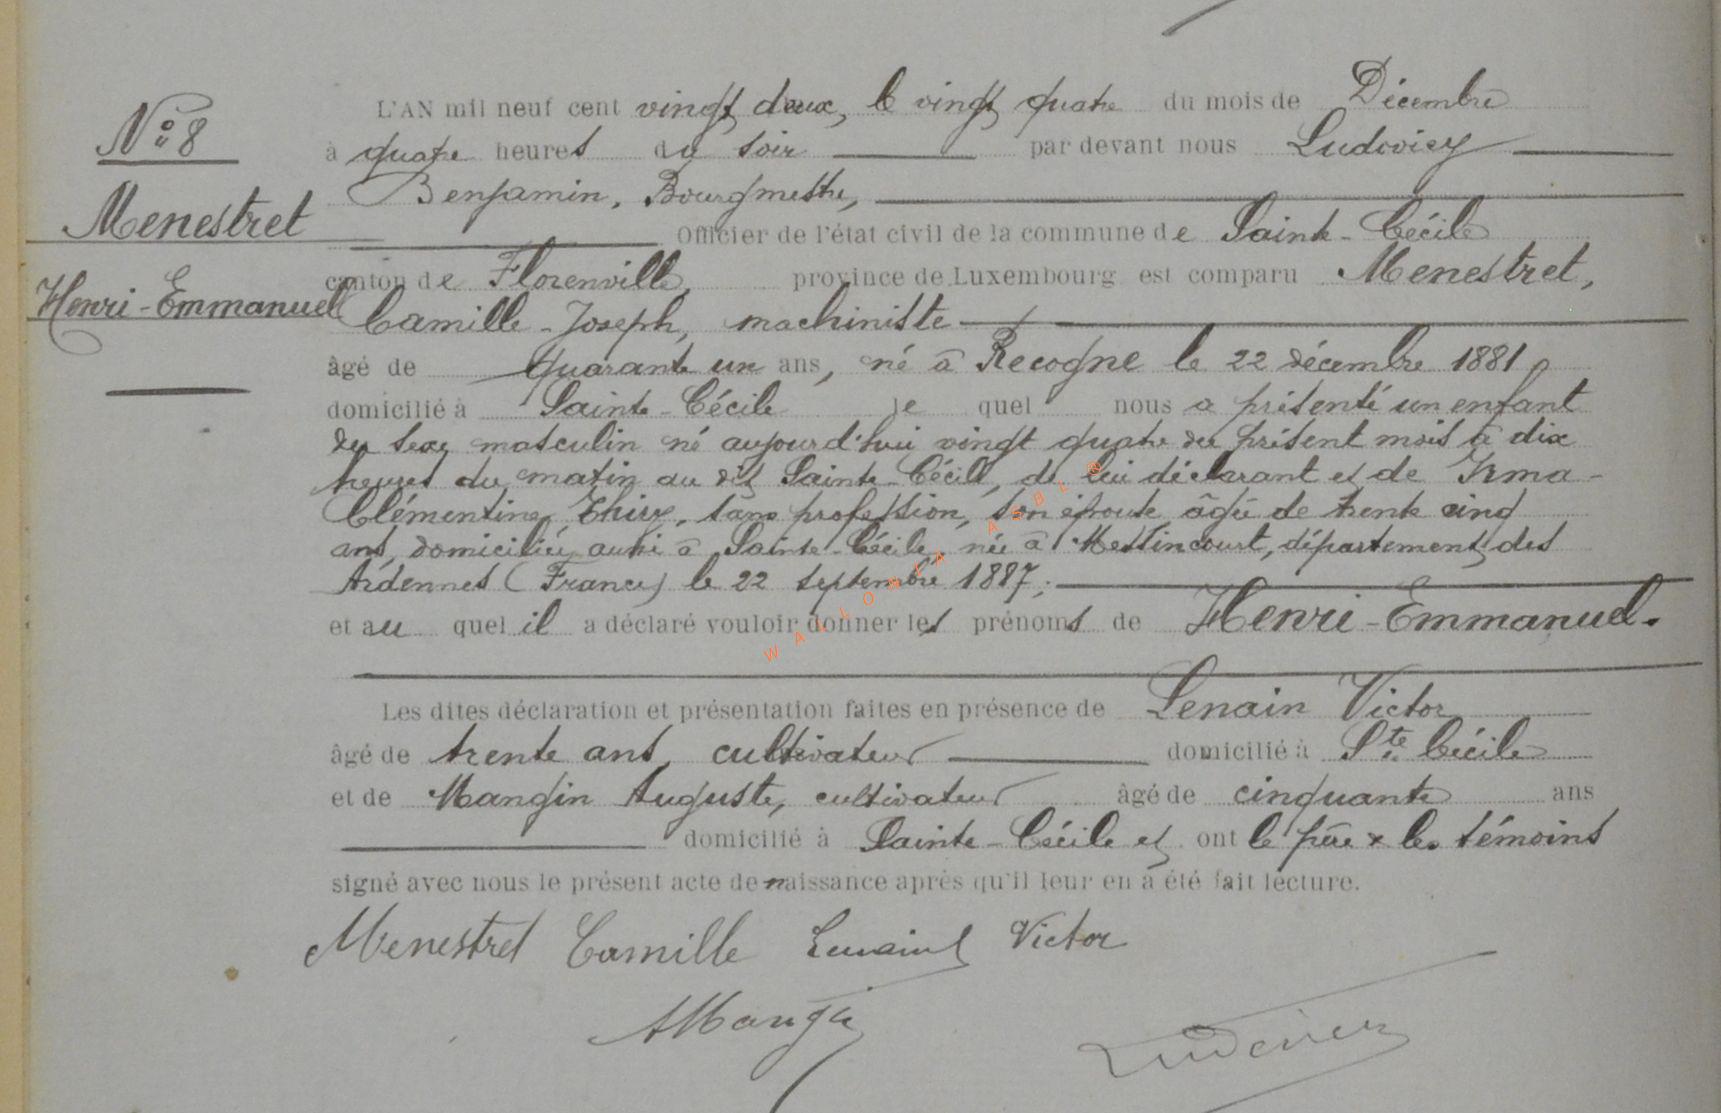 N° 8
Menestret
Henri-Emmanuel
L'AN mil neuf cent vingt deux, le vingt quatre du mois de Décembre
à quatre heures du soir par devant nous Ludovicy
Benjamin, Bourgmestre,
Officier de l'état civil de la commune de Sainte-Cécile
canton de Florenville, province de Luxembourg est comparu Menestret,
Camille-Joseph, machiniste
âgé de quarante un ans, né à Recogne le 22 décembre 1881
domicilié à Sainte-Cécile le quel nous a présenté un enfant
du sexe masculin né aujourd'hui vingt quatre du présent mois à dix
heures du matin au dit Sainte-Cécile, de lui déclarant et de Irma-
Clémentine Thiry, sans profession, son épouse âgée de trente cinq
ans, domiciliée aussi à Sainte-Cécile, née à Messincourt, département des
Ardennes (France) le 22 septembre 1887;
et au quel il a déclaré vouloir donner les prénoms de Henri-Emmanuel.
Les dites déclaration et présentation faites en présence de Lenain Victor
âgé de trente ans, cultivateur domicilié à Ste Cécile
et de Mangin Auguste, cultivateur âgé de cinquante ans
domicilié à Sainte-Cécile et ont le père & les témoins
signé avec nous le présent acte de naissance après qu'il leur en a été fait lecture.
Menestret Camille Lenain Victor
AMangin
Ludovicy
WALLONIA ASBL ©